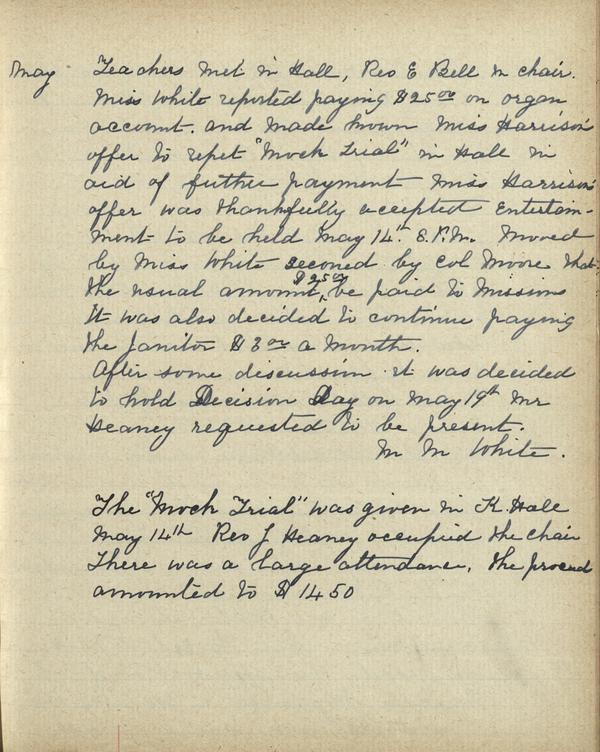 May Teachers met in Hall, Rev E Bell in chair.
Miss White reported paying $25.00 on organ
account. and made known Miss Harrison's
offer to repet "Mock Trial" in Hall in
aid of further payment Miss Harrison's
offer was thankfully accepted Entertain-
ment to be held May 14th. 8.P.M. Moved
by Miss White seconed by Col Moore that
$25.00
the usual amount, be paid to Missions
It was also decided to continue paying
the janitor $3.00 a month.
After some discussion it was decided
to hold Decision Day on May 19th Mr
Heaney requested to be present.
M M White.
The "Mock Trial" was given in K. Hall
May 14th Rev J Heaney occupied the chair
There was a large attendance, the proceed
amounted to $14.50